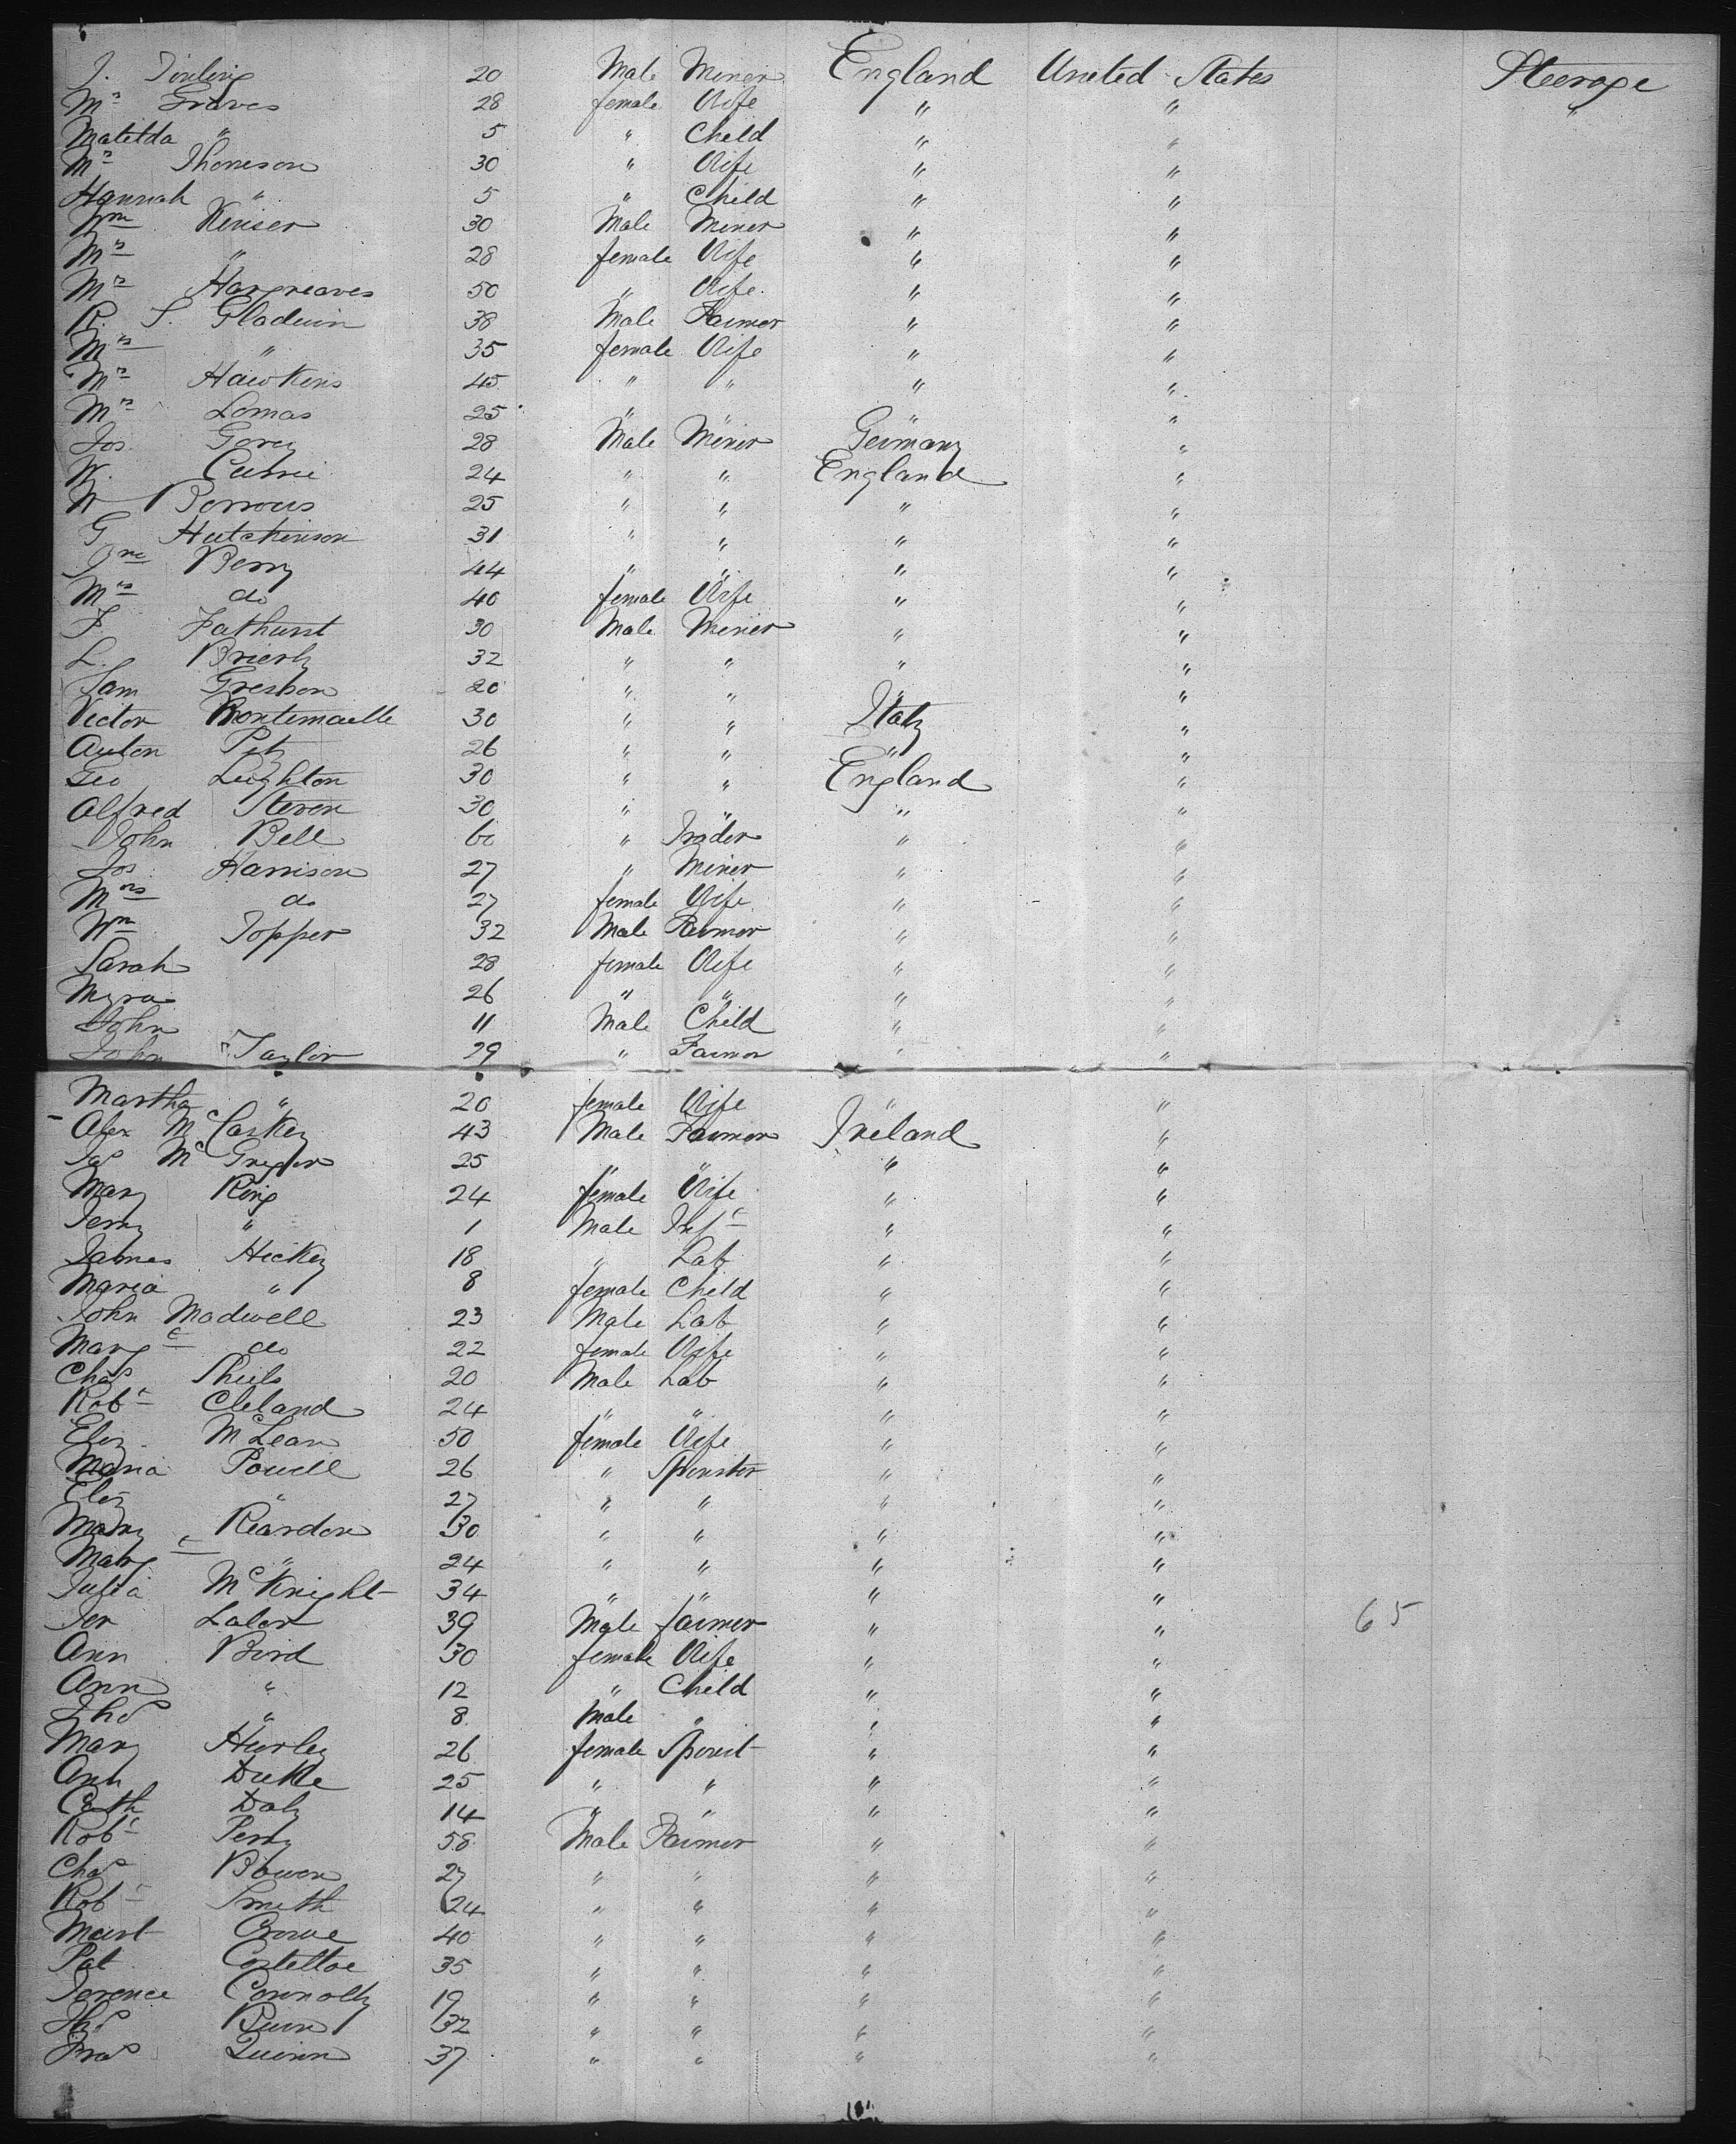 J. Tinling 20 Male Miner England United States Steerage
Mrs Graves 28 female Wife " " "
Matilda " 5 " Child " "
Mrs Thomeson 30 " Wife " "
Hannah " 5 " Child " "
Wm Kenser 30 Male Miner " "
Mrs " 28 female Wife " "
Mrs Hargreaves 50 " Wife " "
R. S. Gladwin 38 Male Farmer " "
Mrs " 35 female Wife " "
Mrs Hawkins 45 " " " "
Mrs Lomas 25 " " " "
Jos Gorey 28 Male Miner Germany "
W. Currie 24 " " England "
W 25 " " " "
G Hutchinson 31 " " " "
Jno Berry 44 " " " "
Mrs do 40 female Wife " "
F. Fathurst 30 Male Miner " "
L. Brierly 32 " " " "
Sam Greshon 20 " " " "
Victor Montemaelle 30 " " Italy "
Anton 26 " " " "
Geo Leighton 30 " " England "
Alfred Steven 30 " " " "
John Bell 60 " Trader " "
Jos Harrison 27 " Miner " "
Mrs do 27 female Wife " "
Wm Topper 32 Male Farmer " "
Sarah 28 female Wife " "
Myra 26 " " " "
John 11 Male Child " "
John Taylor 29 " Farmer " "
Martha " 20 female Wife " "
Alex McCaskey 43 Male Farmer Ireland "
Jas McGregor 25 " " " "
Mary King 24 female Wife " "
Jerry " 1 Male Inft " "
James Hickey 18 " Lab " "
Maria " 8 female Child " "
John Madwell 23 Male Lab " "
Margt do 22 female Wife " "
Chas Sheils 20 Male Lab " "
Robt Cleland 24 " " " "
Eliz McLean 50 female Wife " "
Maria Powell 26 " Spinster " "
Eliz " 27 " " " "
Mary Reardon 30 " " " "
Margt " 24 " " " "
Julia McKnight 34 " " " "
Jer Lalor 39 Male farmer " " 65
Ann Bird 30 female Wife " "
Ann " 12 " Child " "
Thos " 8 Male " " "
Mary Hurley 26 female Spinst " "
Ann Dukle 25 " " " "
Cath Daly 14 " " " "
Robt Perry 58 Male Farmer " "
Chas Bowen 27 " " " "
Robt Smith 24 " " " "
Mart Crowe 40 " " " "
Pat Costelloe 35 " " " "
Terence Connolly 19 " " " "
32 " " " "
Quinn 37 " " " "